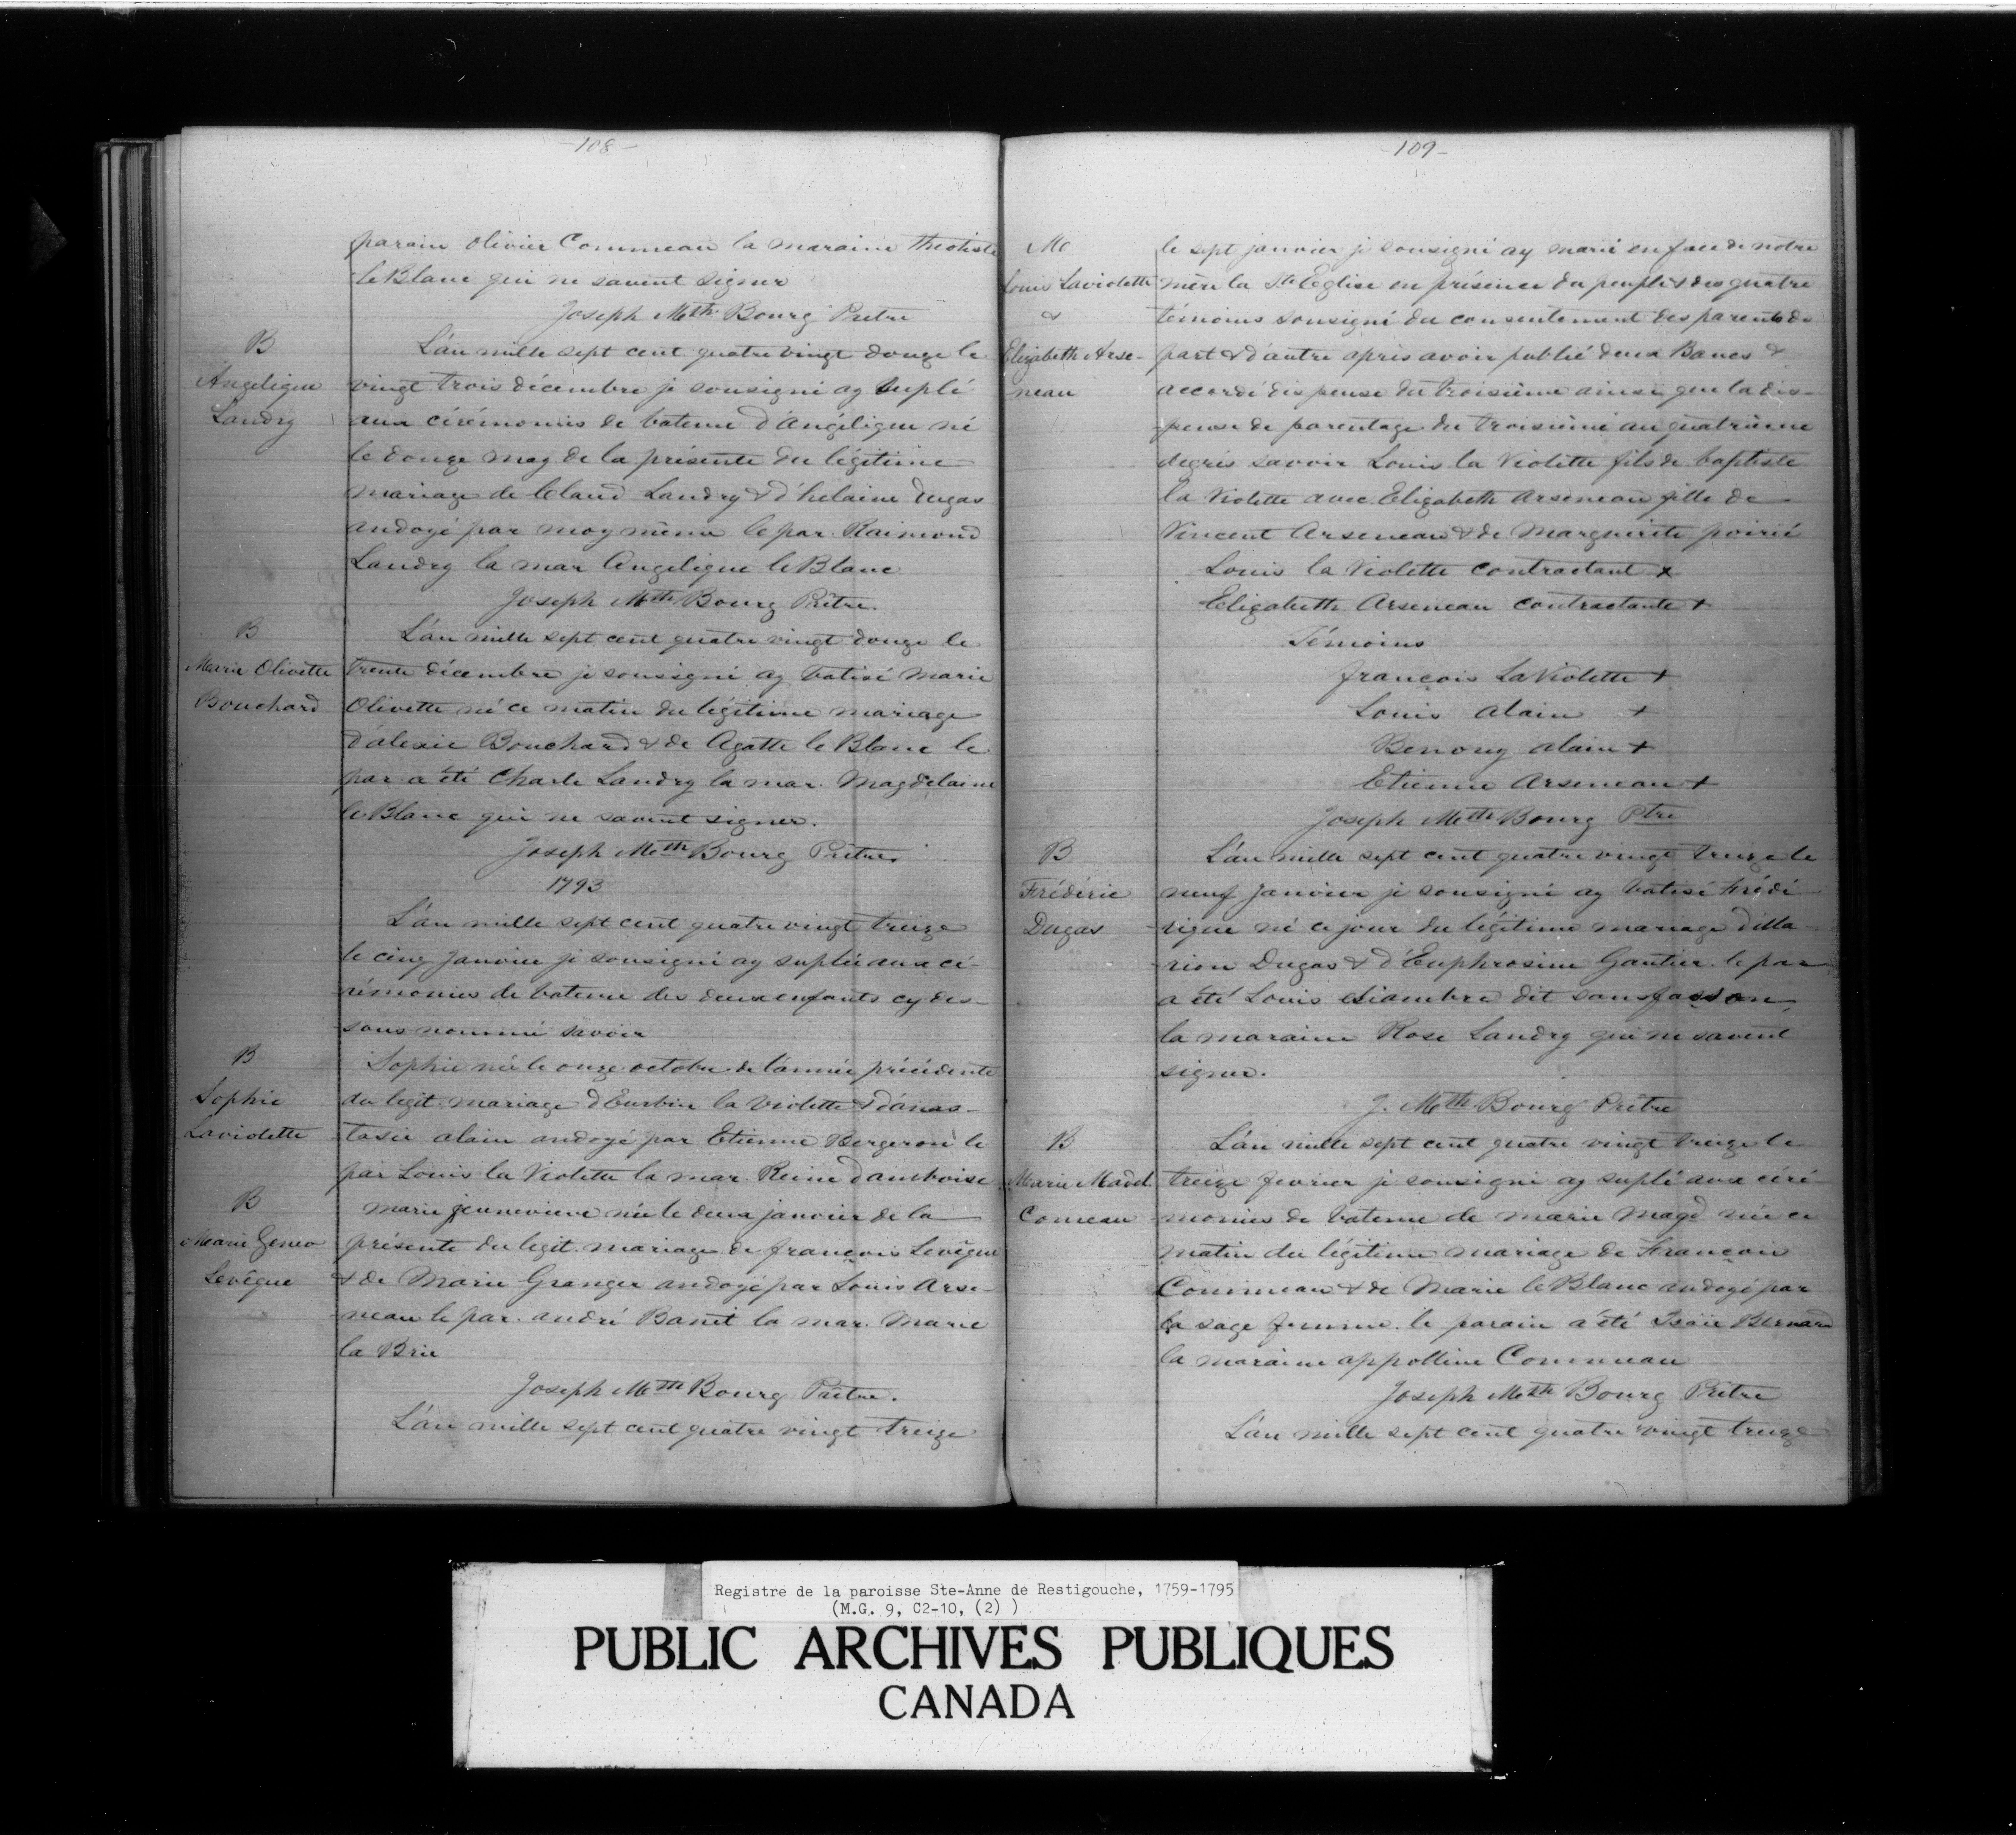 -108-
parain Olivier Commeau la maraine Theotiste
le Blanc qui ne savent signer
Joseph Mth Bourg Pretre
B
Angelique
Landry
L'an mille sept cent quatre vingt douze le
vingt trois décembre je sousigné ay suplé
aux cérémonies de bateme d'Angélique né
le douze may de la présente du légitime
mariage de Claud Landry & d'helaine Dugas
andoyé par moy même le par. Raimond
Landry la mar Angelique le Blanc
Joseph Mth Bourg Prêtre.
B
Marie Olivette
Bouchard
L'an mille sept cent quatre vingt douze le
trente décembre je sousigné ay batisé Marie
Olivette né ce matin du légitime mariage
d'alexie Bouchard & de Agatte le Blanc le
par a été Charle Landry la mar. Magdelaine
le Blanc qui ne savent signer.
Joseph Mth Bourg Prêtre.
1793
L'an mille sept cent quatre vingt treize
le cinq Janvier je sousigné ay suplée aux cé-
rémonies de bateme des deux enfants cy des-
sous nommé savoir
B
Sophie
Laviolette
Sophie née le onze octobre de l'année précédente
du legit. mariage d'Eurbin la Violette & d'anas-
tasie alain andoyé par Etienne Bergeron le
par Louis la Violette la mar. Reine d'amboise
B
Marie Genev
Levêque
Marie jennevieve née le deux janvier de la
présente du legit. mariage de françois Levêque
& de Marie Granger andoyé par Louis Arse-
neau le par. andré Banet la mar. Marie
la Brie
Joseph Mth Bourg Prêtre.
L'an mille sept cent quatre vingt treize
-109-
M
Louis Laviolette
&
Elizabeth Arse-
neau
le sept janvier je sousigné ay marié en face de notre
mère la Ste Eglise en présence du peuple & des quatre
témoins sousigné du consentement des parents de
part & d'autre après avoir publié deux Bancs &
accordé dispense du troisième ainsi que la dis-
-pense de parentage du troisième au quatrième
degrés savoir Louis la Violette fils de baptiste
la Violette avec Elizabeth Arseneau fille de
Vincent Arseneau & de Marguerite poirié
Louis la Violette contractant +
Elizabeth Arseneau contractante +
Témoins
françois La Violette +
Louis alain +
Benony alain +
Etienne Arseneau +
Joseph Mth Bourg Ptre
B
Frédéric
Dugas
L'an mille sept cent quatre vingt treize le
neuf Janvier je sousigné ay batisé Frédé
rique né ce jour du légitime mariage d'illa-
rion Dugas & d'Euphrosine Gautier le par
a été Louis chiambre dit sansfasson
la maraine Rose Landry qui ne savent
signer.
J. Mth Bourg Prêtre
B
Marie Madel
Comeau
L'an mille sept cent quatre vingt treize le
treize fevrier je sousigné ay suplé aux céré-
monies de bateme de marie Magd née ce
matin du légitime mariage de François
Commeau & de Marie le Blanc andoyé par
la sage femme. le parain a été Isaïe Bernard
la maraine appolline Commeau
Joseph Mth Bourg Prêtre
L'an mille sept cent quatre vingt treize
Registre de la paroisse Ste-Anne de Restigouche, 1759-1795
(M.G. 9, C2-10, (2) )
PUBLIC ARCHIVES PUBLIQUES
CANADA